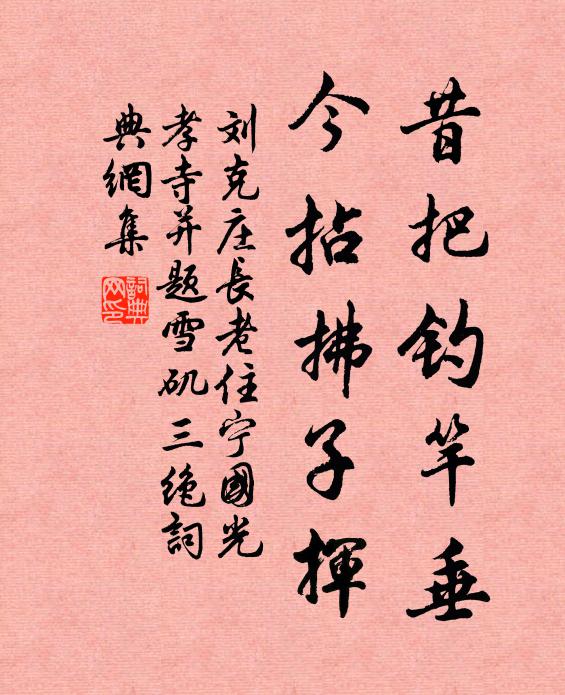 昔把钓竿垂
今拈拂子揮
刘克庄長老住宁國光
孝寺并题雪矶三绝詞
典網集
詞典网印